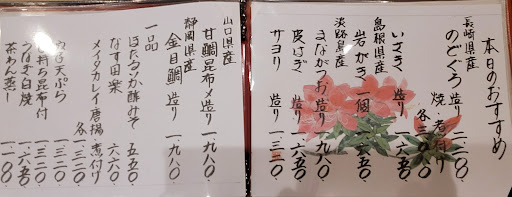 本日のおすすめ
長崎県産
のどぐろ 造り 二二八〇
焼・煮付け 各三三〇〇
いさき 造り 一六五〇
島根県産
岩がき 一個 一六五〇
淡路島産
まながつお 造り 一九八〇
皮はぎ 造り 一六五〇
サヨリ 造り 一三二〇
山口県産
甘鯛昆布〆造り 一九八〇
静岡県産
金目鯛 造り 一九八〇
一品
ほたるいか酢みそ 五五〇
なす田楽 六六〇
メイタカレイ 唐揚 煮付け 各一六五〇
天ぷら 一三二〇
子持ち昆布付 一三二〇
うなぎ白焼 一六五〇
茶わん蒸し 一一〇〇